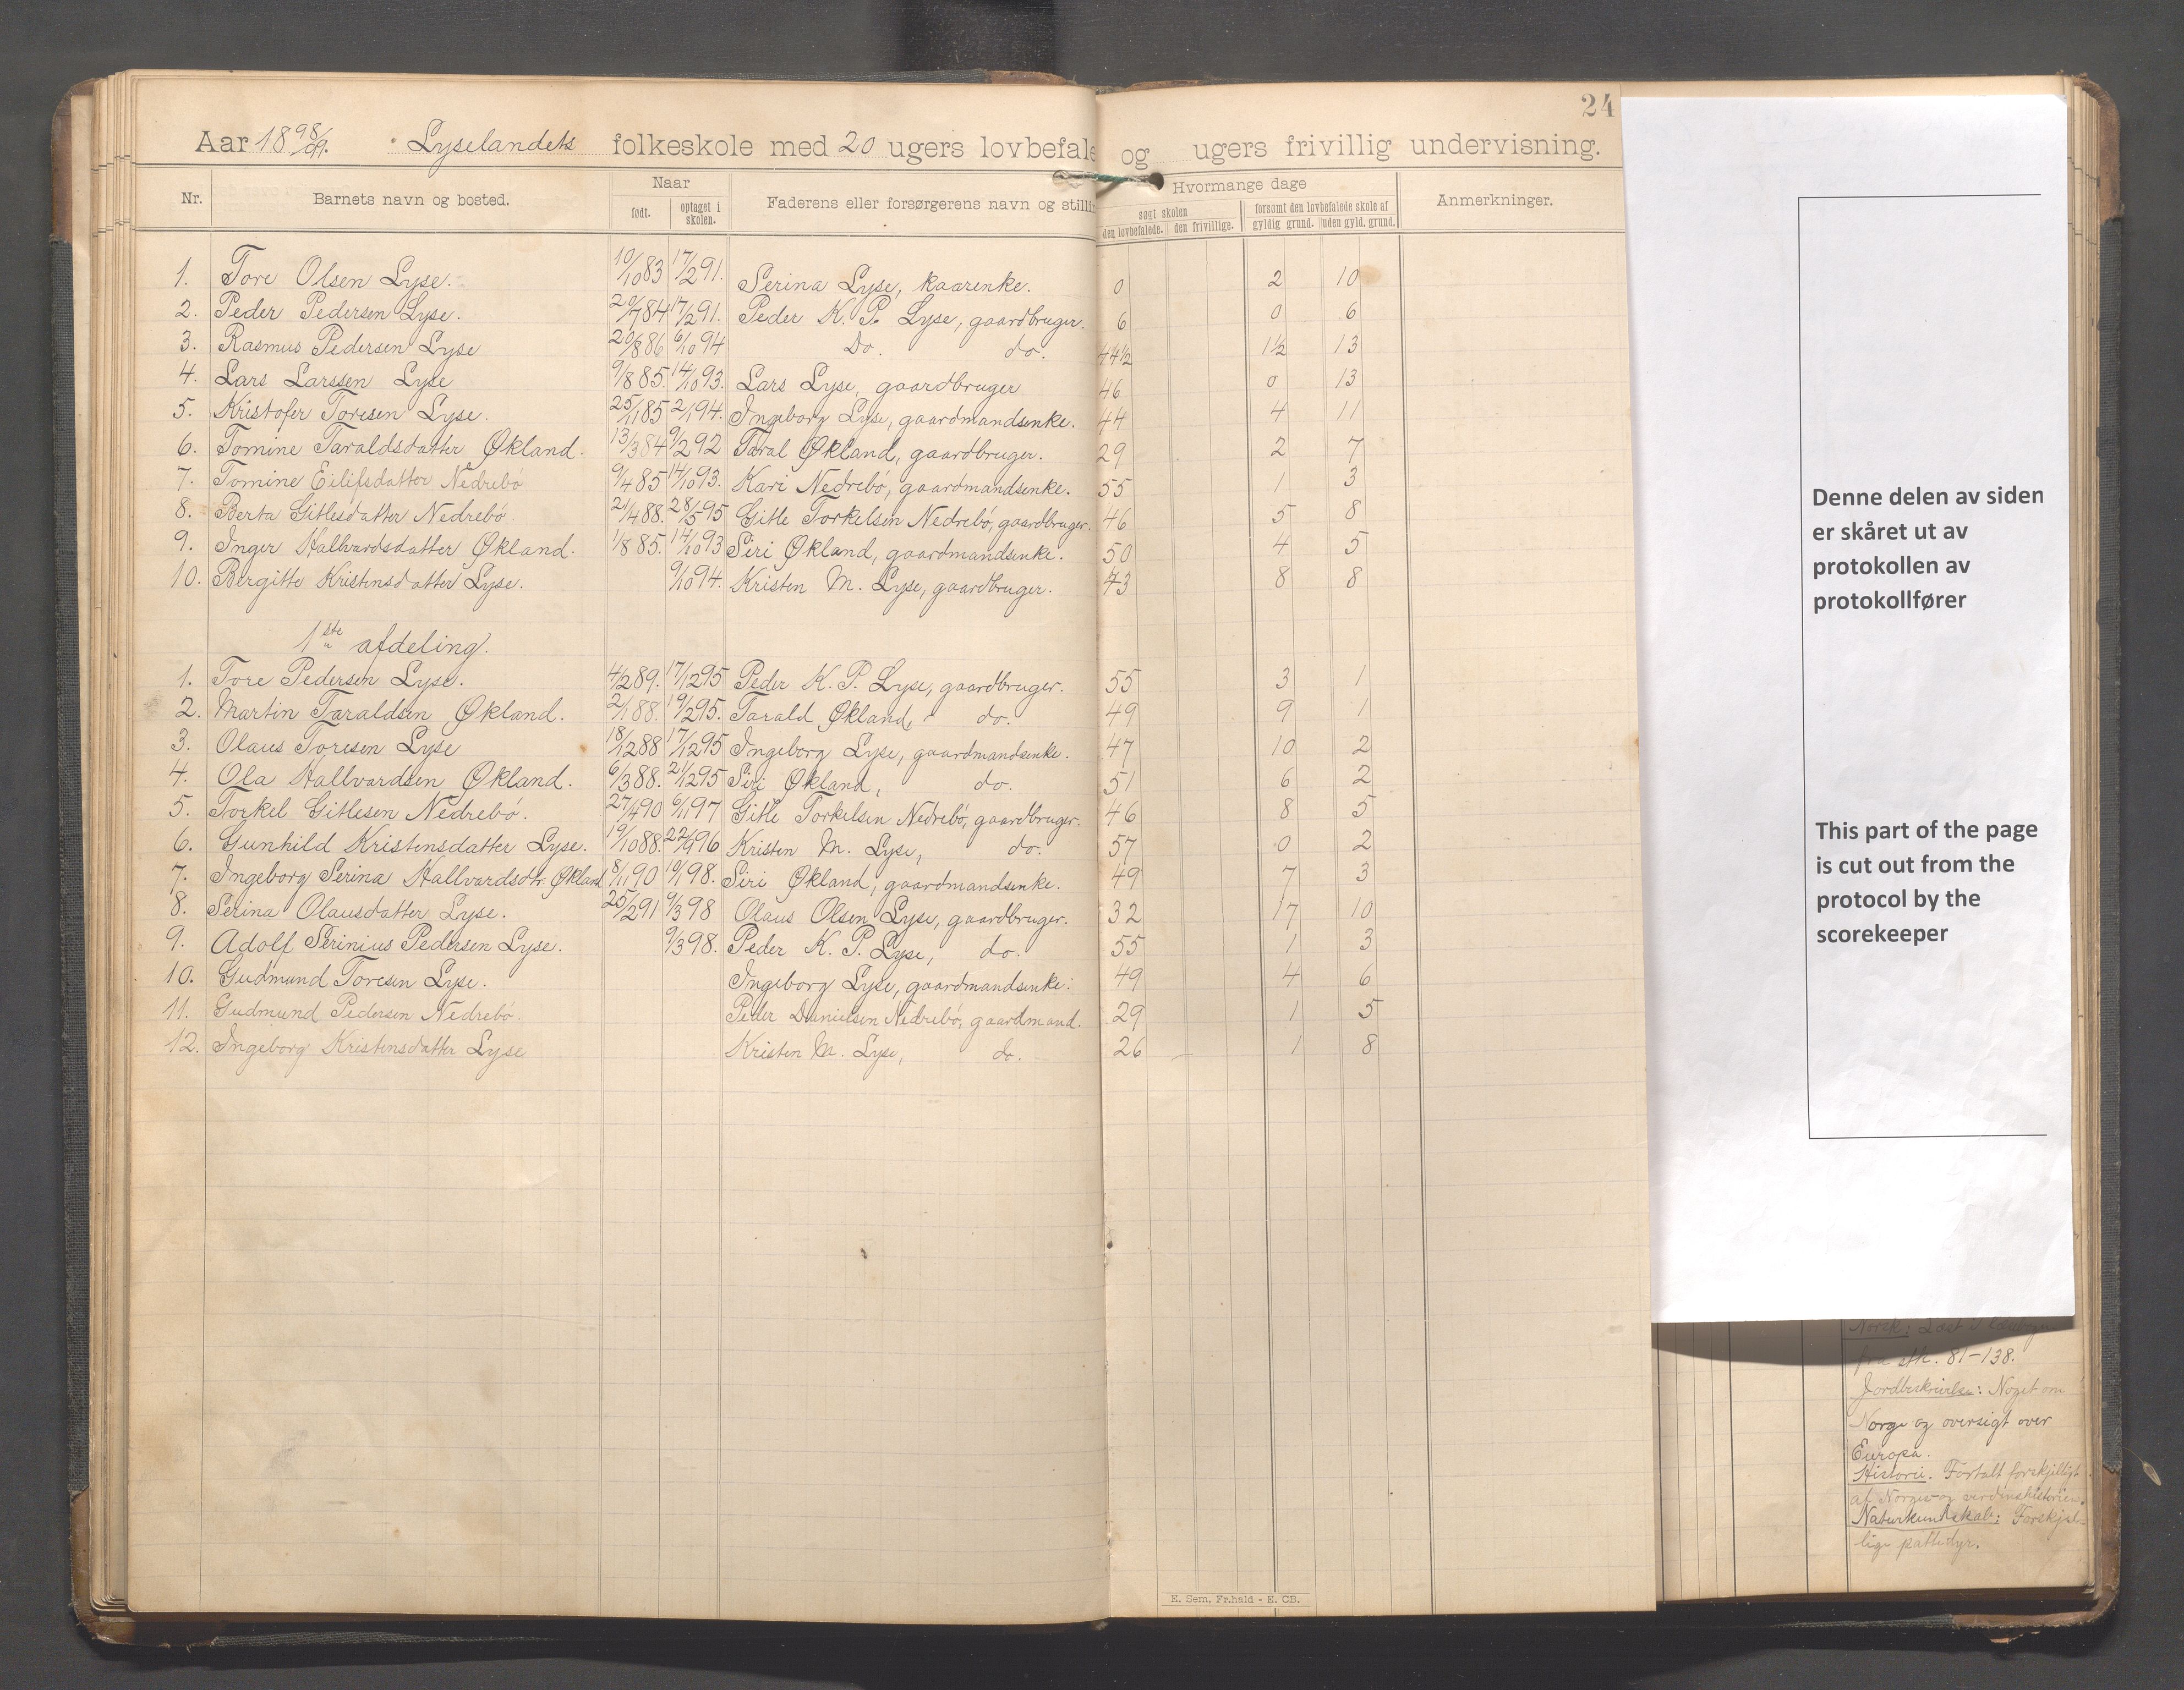 24
Aar 1898/99. Lyselandets folkeskole med 20 ugers lovbefale og ugers frivillig undervisning.
Nr. Barnets navn og bosted. Naar født. optaget i skolen. Faderens eller forsørgerens navn og stillin Hvormange dage søgt skolen den lovbefalede. den frivillige. forsømt den lovbefalede skole af gyldig grund. uden gyld. grund. Anmerkninger.
1. Tore Olsen Lyse. 10/10 83 17/2 91. Serina Lyse, kaarenke. 0 2 10
2. Peder Pedersen Lyse. 20/7 84 17/2 91. Peder K. P. Lyse, gaardbruger. 6 0 6
3. Rasmus Pedersen Lyse 20/8 86 6/10 94 Do. do. 44½ 1½ 13
4. Lars Larssen Lyse 9/8 85. 14/10 93. Lars Lyse, gaardbruger 46 0 13
5. Kristofer Toresen Lyse. 25/11 85 2/1 94. Ingeborg Lyse, gaardmandsenke. 44 4 11
6. Tomine Taraldsdatter Økland. 13/3 84 9/2 92 Taral Økland, gaardbruger. 29 2 7
7. Tomine Eilifsdatter Nedrebö 9/4 85 14/10 93. Kari Nedrebö, gaardmandsenke. 55 1 3
8. Berta Gitlesdatter Nedrebö. 21/4 88. 28/5 95 Gitle Torkelsen Nedrebö, gaardbruger. 46 5 8
9. Inger Hallvardsdatter Økland. 1/8 85. 14/10 93 Siri Økland, gaardmandsenke. 50 4 5
10. Birgitte Kristensdatter Lyse. 9/10 94. Kristen M. Lyse, gaardbruger. 43 8 8
1ste afdeling.
1. Tore Pedersen Lyse. 4/2 89. 17/12 95 Peder K. P. Lyse, gaardbruger. 55 3 1
2. Martin Taraldsen Økland. 2/1 88. 19/2 95. Tarald Økland, do. 49 9 1
3. Olaus Toresen Lyse 18/12 88 17/12 95 Ingeborg Lyse, gaardmandsenke. 47 10 2
4. Ola Hallvardsen Økland. 6/3 88. 21/2 95 Siri Økland, do. 51 6 2
5. Torkel Gitlesen Nedrebö. 27/4 90 6/11 97 Gitle Torkelsen Nedrebö, gaardbruger. 46 8 5
6. Gunhild Kristensdatter Lyse. 19/10 88. 22/9 96 Kristen M. Lyse, do. 57 0 2
7. Ingeborg Serina Hallvardsdtr. Økland 8/11 90 10/1 98. Siri Økland, gaardmandsenke. 49 7 3
8. Serina Olausdatter Lyse. 25/2 91 9/3 98 Olaus Olsen Lyse, gaardbruger. 32 17 10
9. Adolf Serinius Pedersen Lyse. 9/3 98. Peder K. P. Lyse, do. 55 1 3
10. Gudmund Toresen Lyse. Ingeborg Lyse, gaardmandsenke. 49 4 6
11. Gudmund Pedersen Nedrebö. Peder Danielsen Nedrebö, gaardmand. 29 1 5
12. Ingeborg Kristensdatter Lyse Kristen M. Lyse, do. 26 1 8
E. Sem, Fr.hald - E. CB.
Denne delen av siden
er skåret ut av
protokollen av
protokollfører
This part of the page
is cut out from the
protocol by the
scorekeeper
Norsk: Læst i
fra stk. 81-138.
Jordbeskrivelse: Noget om
Norge og oversigt over
Europa.
Historie. Fortalt forskjelligt
af Norges og verdenshistorien.
Naturkundskab: Forskjel-
lige pattedyr.